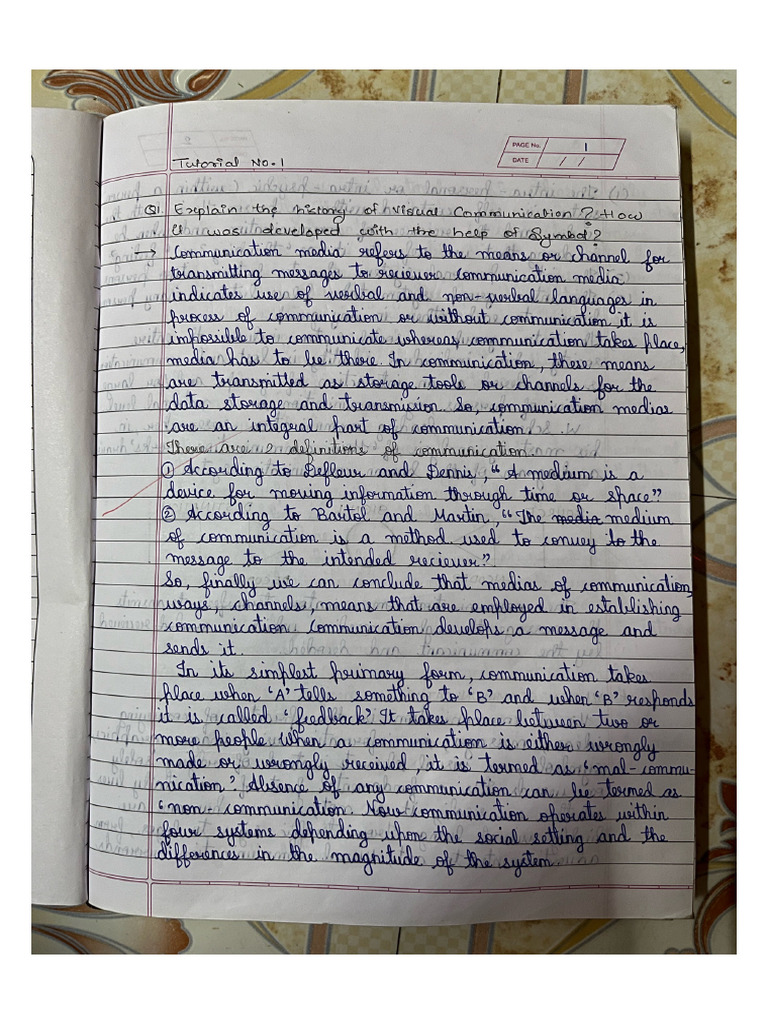 PAGE No. 1
DATE / /
Tutorial No.1
Q1. Explain the history of Visual Communication? How
it was developed with the help of Symbol?
→ Communication media refers to the means or channel for
transmitting messages to reciever communication media
indicates use of verbal and non-verbal languages in
process of communication or without communication it is
impossible to communicate whereas communication takes place,
media has to be there. In communication, these means
are transmitted as storage tools or channels for the
data storage and transmission. So, communication medias
are an integral part of communication.
There are 2 definitions of communication.
① According to Defleur and Dennis, "A medium is a
device for moving information through time or space"
② According to Bartol and Martin, "The media medium
of communication is a method used to convey to the
message to the intended reciever".
So, finally we can conclude that medias of communication,
ways, channels, means that are employed in establishing
communication communication develops a message and
sends it.
In its simplest primary form, communication takes
place when 'A' tells something to 'B' and when 'B' responds
it is called 'feedback'. It takes place between two or
more people when a communication is either wrongly
made or wrongly received, it is termed as 'mal-commu-
nication'. Absence of any communication can be termed as
'non-communication. Now communication operates within
four systems depending upon the social setting and the
differences in the magnitude of the system.